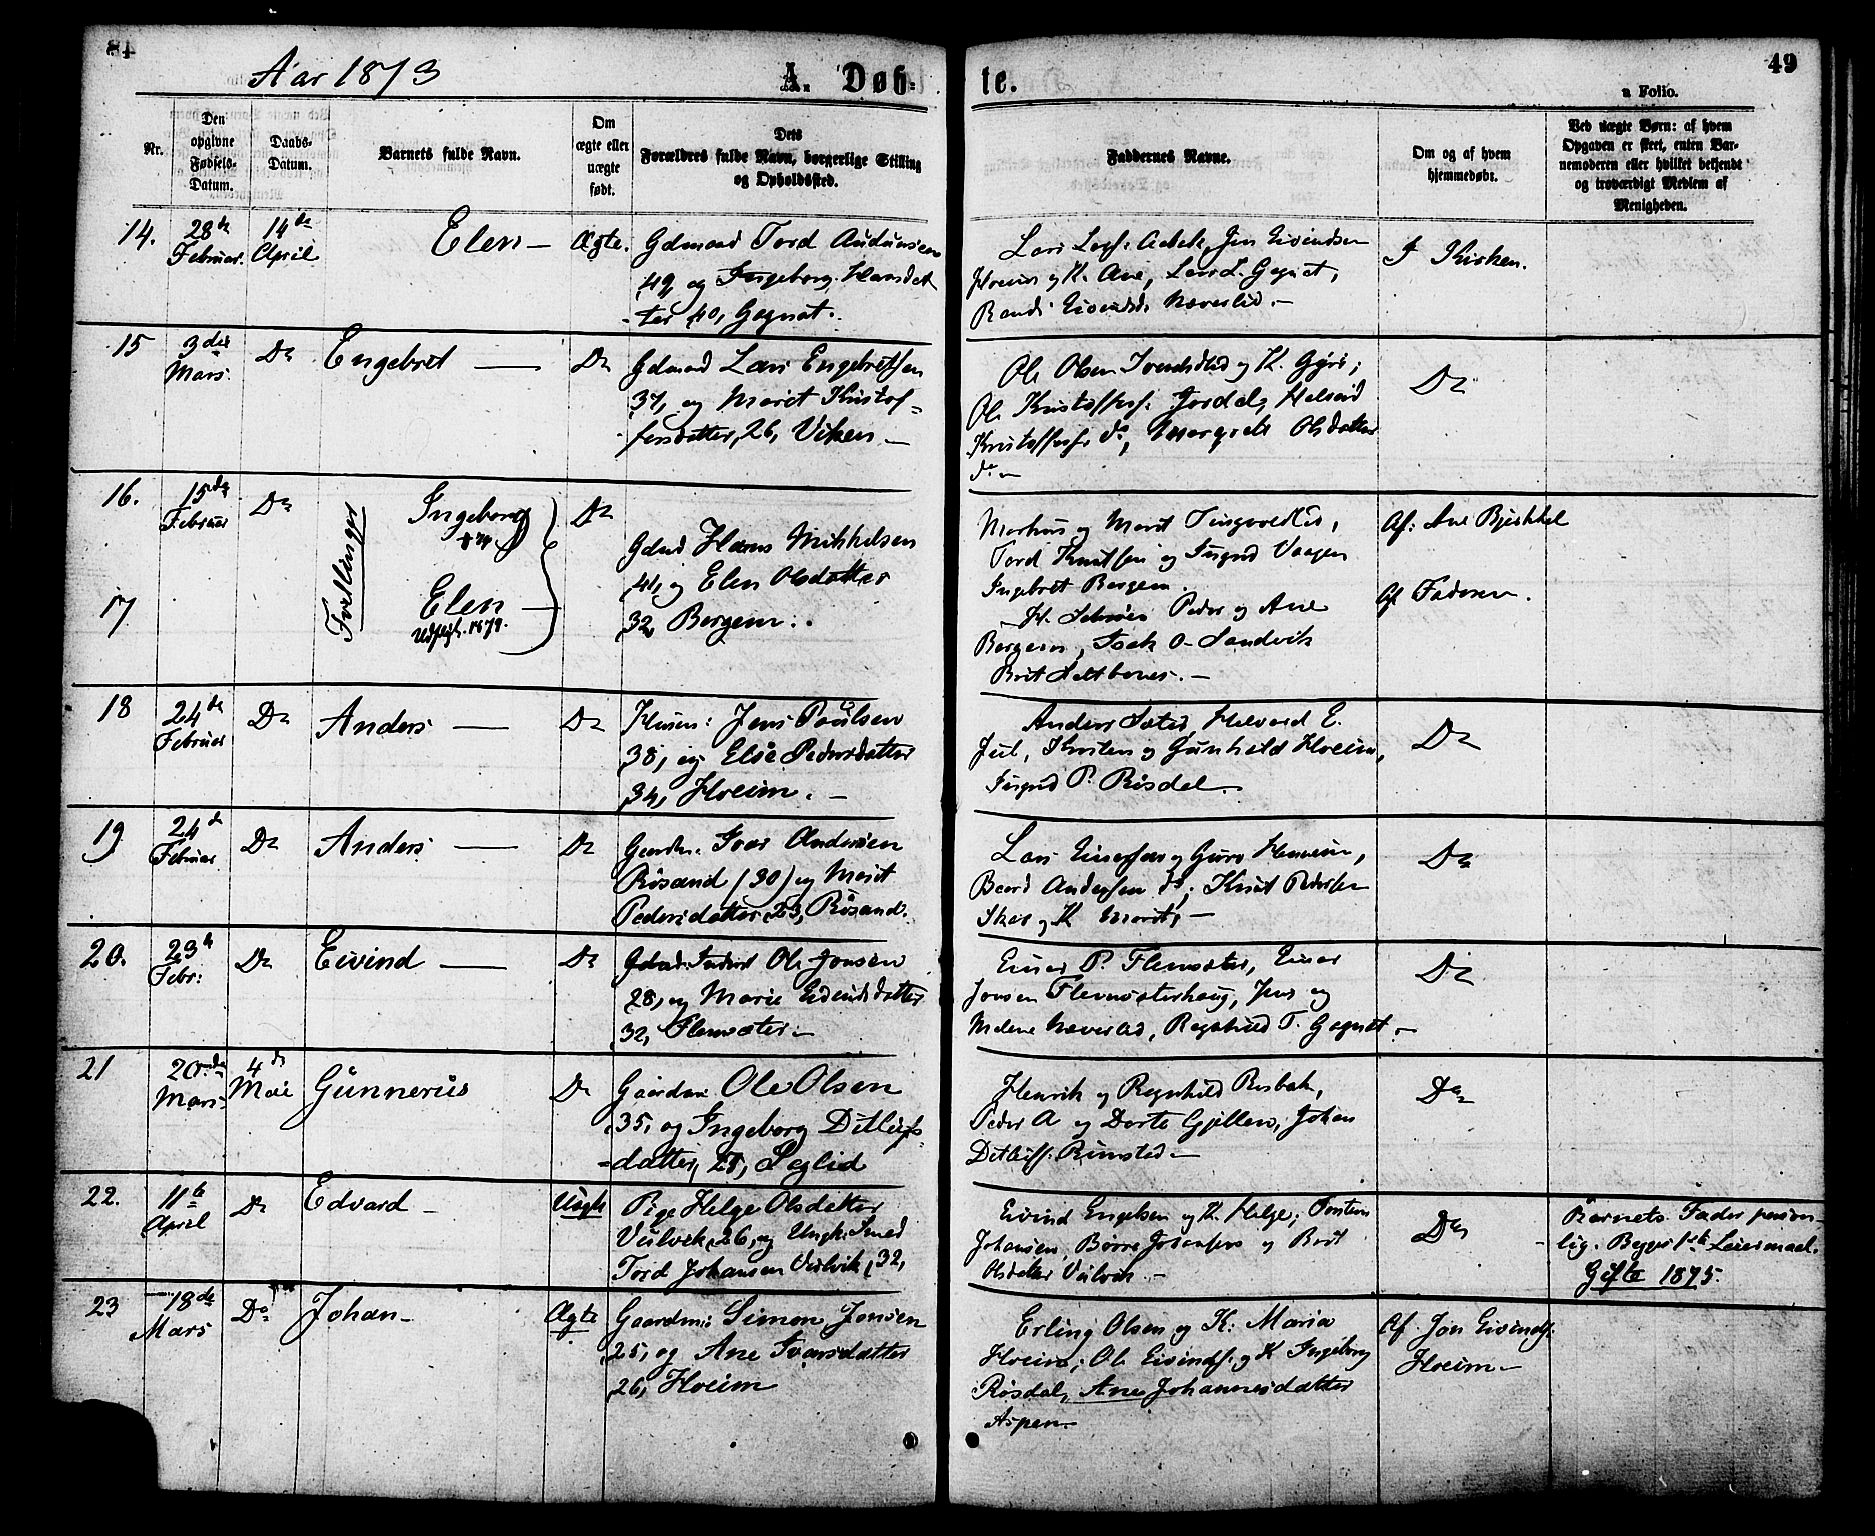 Aar 1873
A. Døb-
te.
49
a Folio.
Nr.
Den
opgivne
Fødsels-
Datum.
Daabs-
Datum.
Barnets fulde Navn.
Om
ægte eller
uægte
født.
Dets
Forældres fulde Navn, borgerlige Stilling
og Opholdssted.
Faddernes Navne.
Om og af hvem
hjemmedøbt.
Ved uægte Børn: af hvem
Opgaven er skeet, enten Bar-
nemoderen eller hvilket bekjendt
og troværdigt Medlem af
Menigheden.
14.
28de
Februar.
14de
April
Elen —
Ægte.
Gdmand Tord Audunsen
49 og Ingeborg Hansdat
ter 40, Gagnat.
Lars Aabek, Jon Eivindsen
Hoem og K. Ane, Lars L. Gagnat,
Randi Eivindsd. Næverlid. —
I Kirken.
15
3die
Mars.
Do
Engebret —
Do
Gdmand Lars Engebretsen
37, og Marit Kristof-
fersdatter, 26, Viken —
Ole Olsen og K. Gjøri;
Ole Kristoffersf. Jordal,
Kristoffersf. do, Margrete Olsdatter
do —
Do
16.
15de
Februar
Do
Tvillinger
Ingeborg
Do
Gdmd Hans Mikkelsen
41, og Elen Olsdatter
32, Bergem.
Markus og Marit Tingvoldlid,
Tord Knutsen og Ingrid Vaagen
Ingebret Bergem.
Af: Ane
17
Elen —
Udflytt. 1879.
Peder og Ane
Bergem, Isak O. Sandvik
Brit —
Af Faderen.
18
24de
Februar
Do
Anders —
Do
Husm: Jens Paulsen
38, og Else Pedersdatter
34, Hoeim. —
Anders Sæter, Halvard E.
og Gunhild Hoeim,
Ingrid P. Røsdal. —
Do
19
24de
Februar
Do
Anders —
Do
Gaardm. Ivar Andersen
Røsand (30) og Marit
Pedersdatter, 23, Røsand.
Lars og Guro
Baard Andersen do, Knut Pedersen
og K. Marit, —
Do
20.
23de
Febr:
Do
Eivind —
Do
Ole Jonsen
28, og Marie Eivindsdatter
32, Flemsæter —
Einar P. Flemsæter, Einar
Jonsen Flemsæterhaug, Jens og
Malene Næverlid, Ragnhild T. Gagnat. —
Do
21
20de
Mars.
4de
Mai
Gunnerius
Do
Gaardm: Ole Olsen
35, og Ingeborg Ditlefs-
datter, Leglid
Henrik og Ragnhild Risbak,
Peder A. og Dorte Gjellen, Johan
Ditlefsf. Rimstad —
Do
22.
11te
April
Do
Edvard —
Uægte
Pige Helge Olsdatter
Vulvik, 26, og Ungk. Smed
Tord Johansen Vulvik, 32,
Eivind Engelsen og K. Helge; Torsten
Johansen, Børre Johansen og Brit
Olsdatter Vulvik. —
Do
Barnets Fader person-
lig. Begges 1ste Leiermaal.
Gifte 1875.
23
18de
Mars
Do
Johan —
Ægte
Gaardm: Simon Jonsen
25, og Ane Ivarsdatter
26, Hoeim
Erling Olsen og K. Maria
Hoeim; Ole Eivindsf. og K. Ingeborg
Røsdal, Ane Johannesdatter
Aspen. —
Af Jon Eivindsf.
Hoeim —